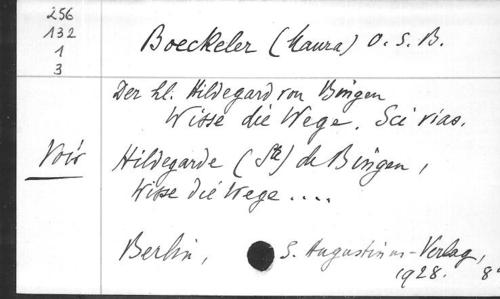 256
132
1
3
Boeckeler (Maura) O. S. B.
Der hl. Hildegard von Bingen
Wisse die Wege. Sci vias.
Voir
Hildegarde (Ste) de Bingen,
Wisse die Wege ....
Berlin, S. Augustinus-Verlag,
1928. 8°